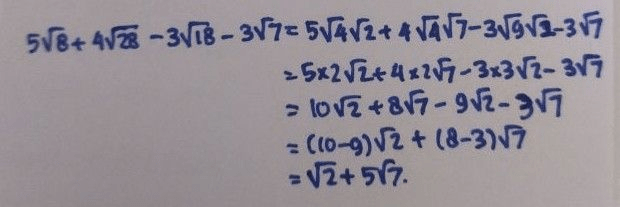 5√8 + 4√28 - 3√18 - 3√7 = 5√4√2 + 4√4√7 - 3√9√2 - 3√7
= 5×2√2 + 4×2√7 - 3×3√2 - 3√7
= 10√2 + 8√7 - 9√2 - 3√7
= (10-9)√2 + (8-3)√7
= √2 + 5√7.